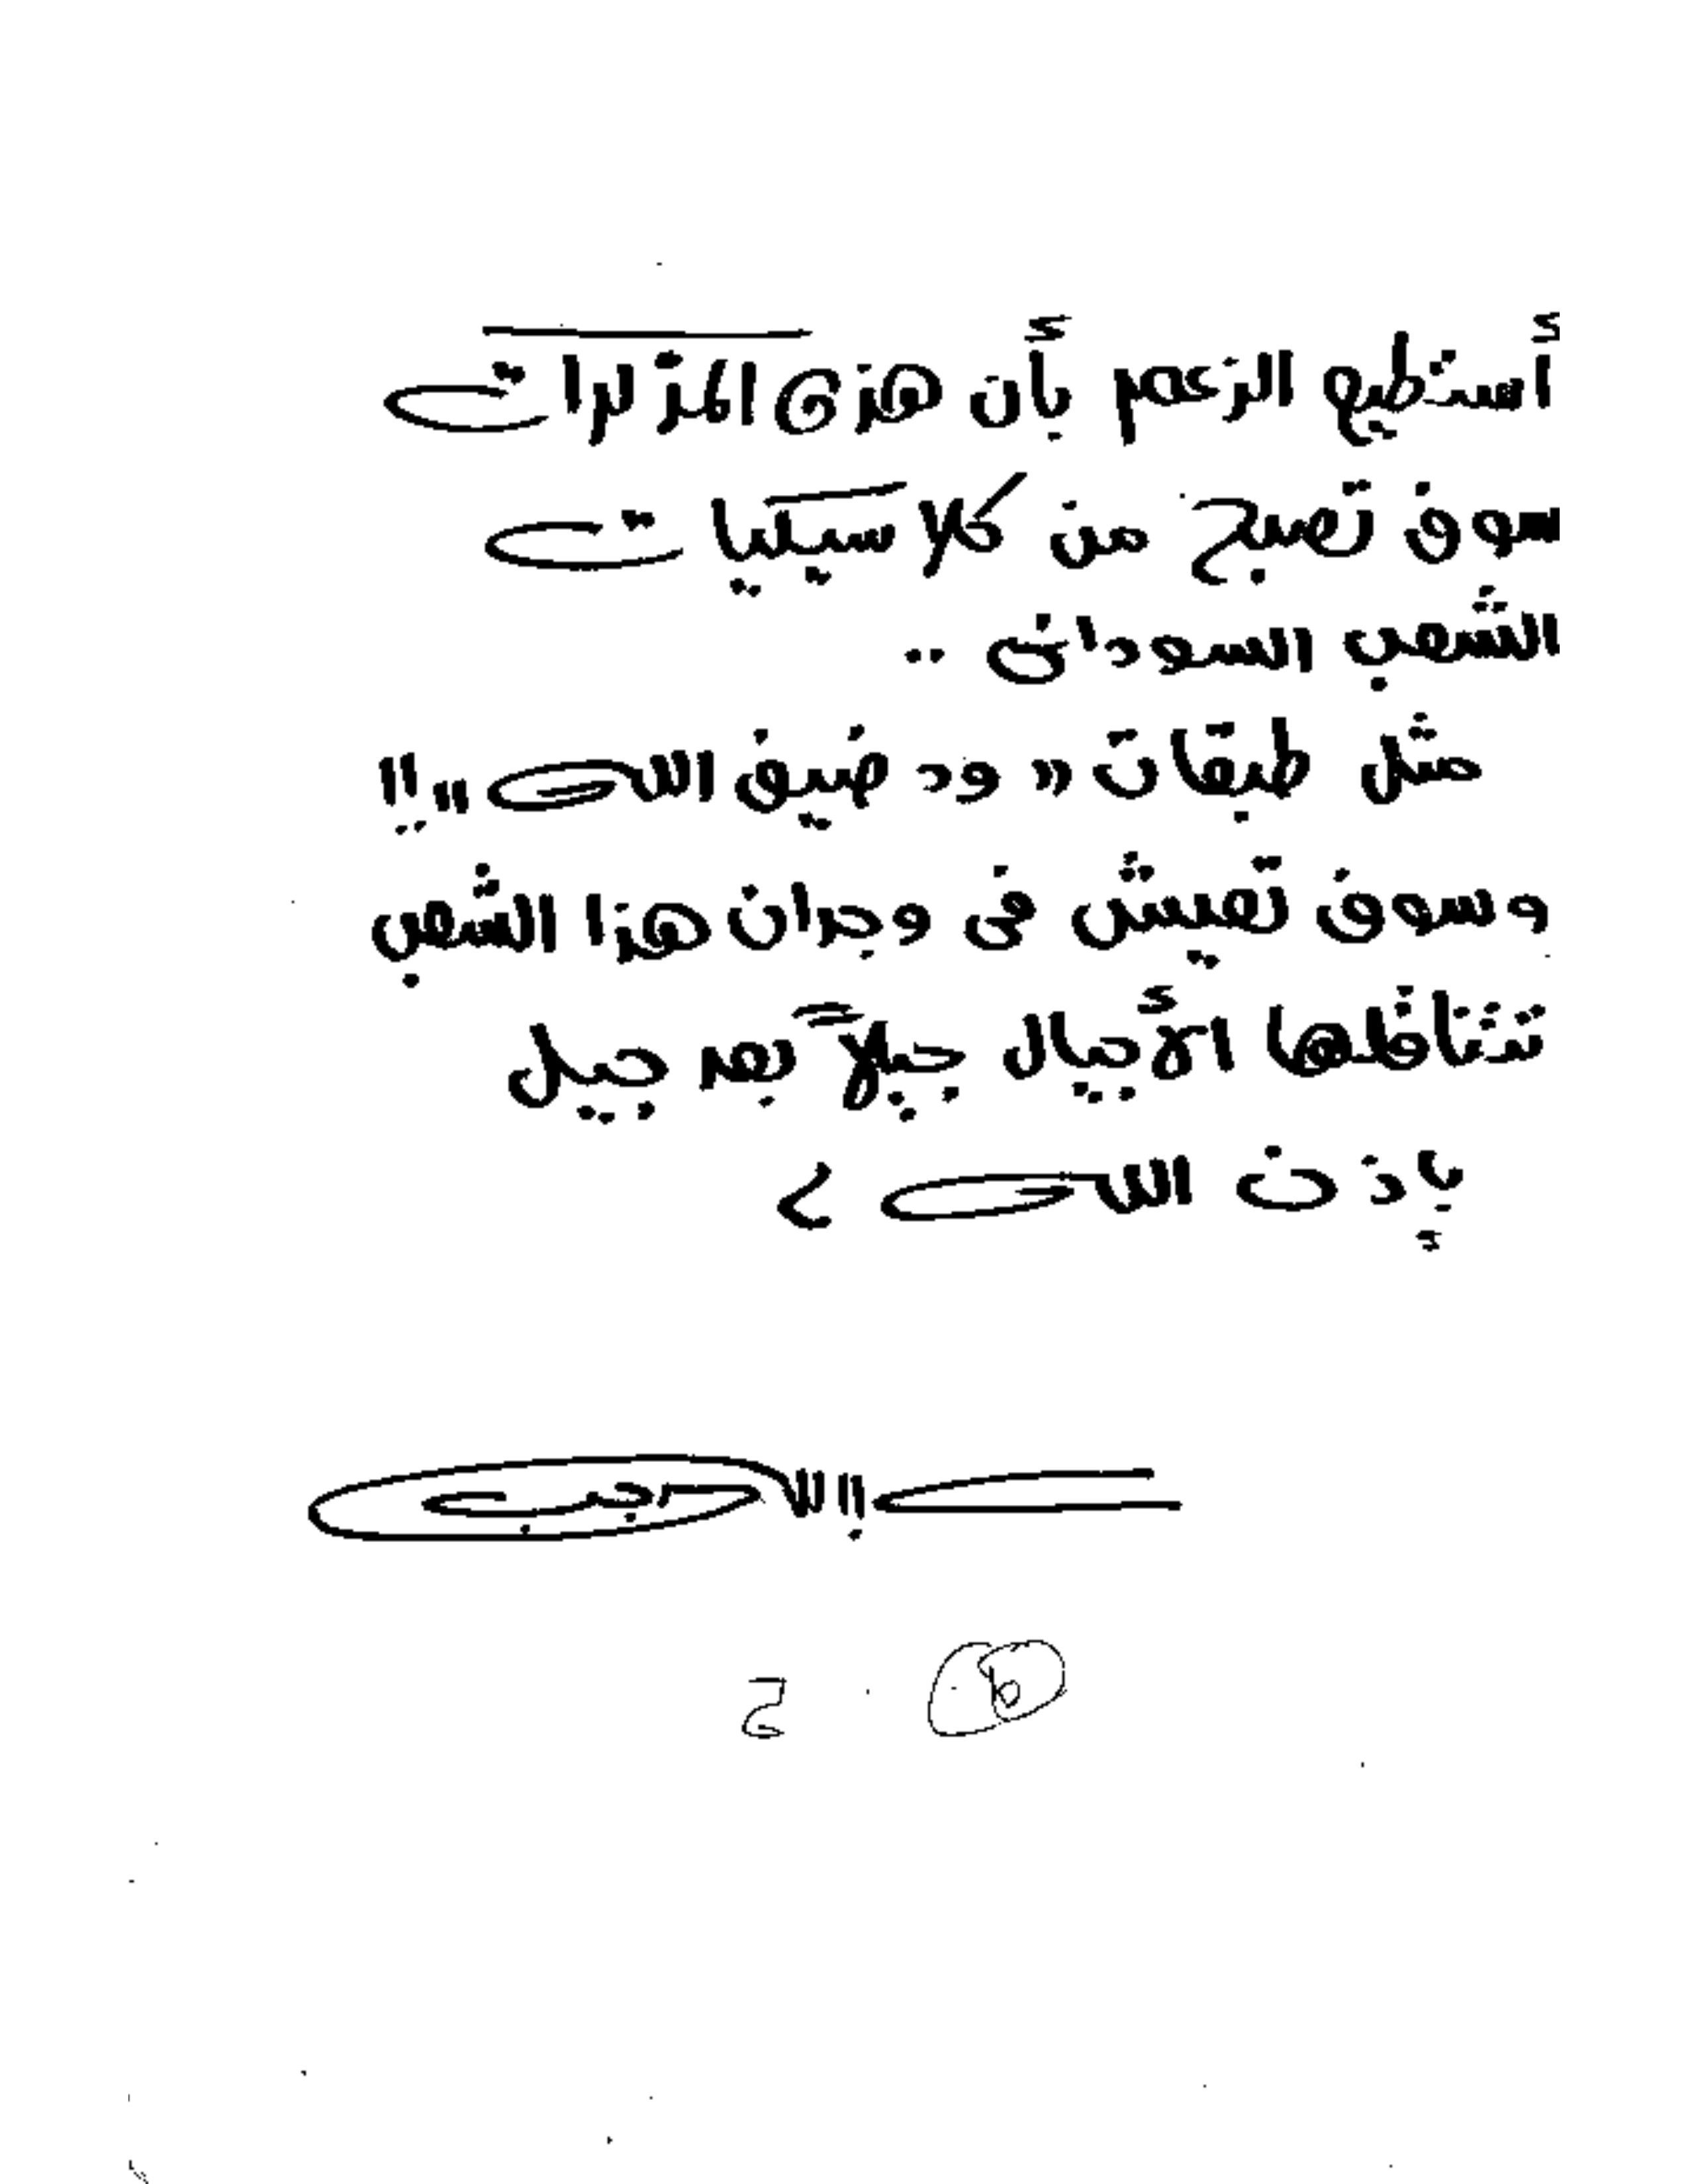 أستطيع الزعم بأن هذه المذكرات
سوف تصبح من كلاسيكيات
الشعب السودانى ..
مثل طبقات « ود ضيف الله » !!
وسوف تعيش فى وجدان هذا الشعب
تتناقلها الأجيال جيلاً بعد جيل
بإذن الله